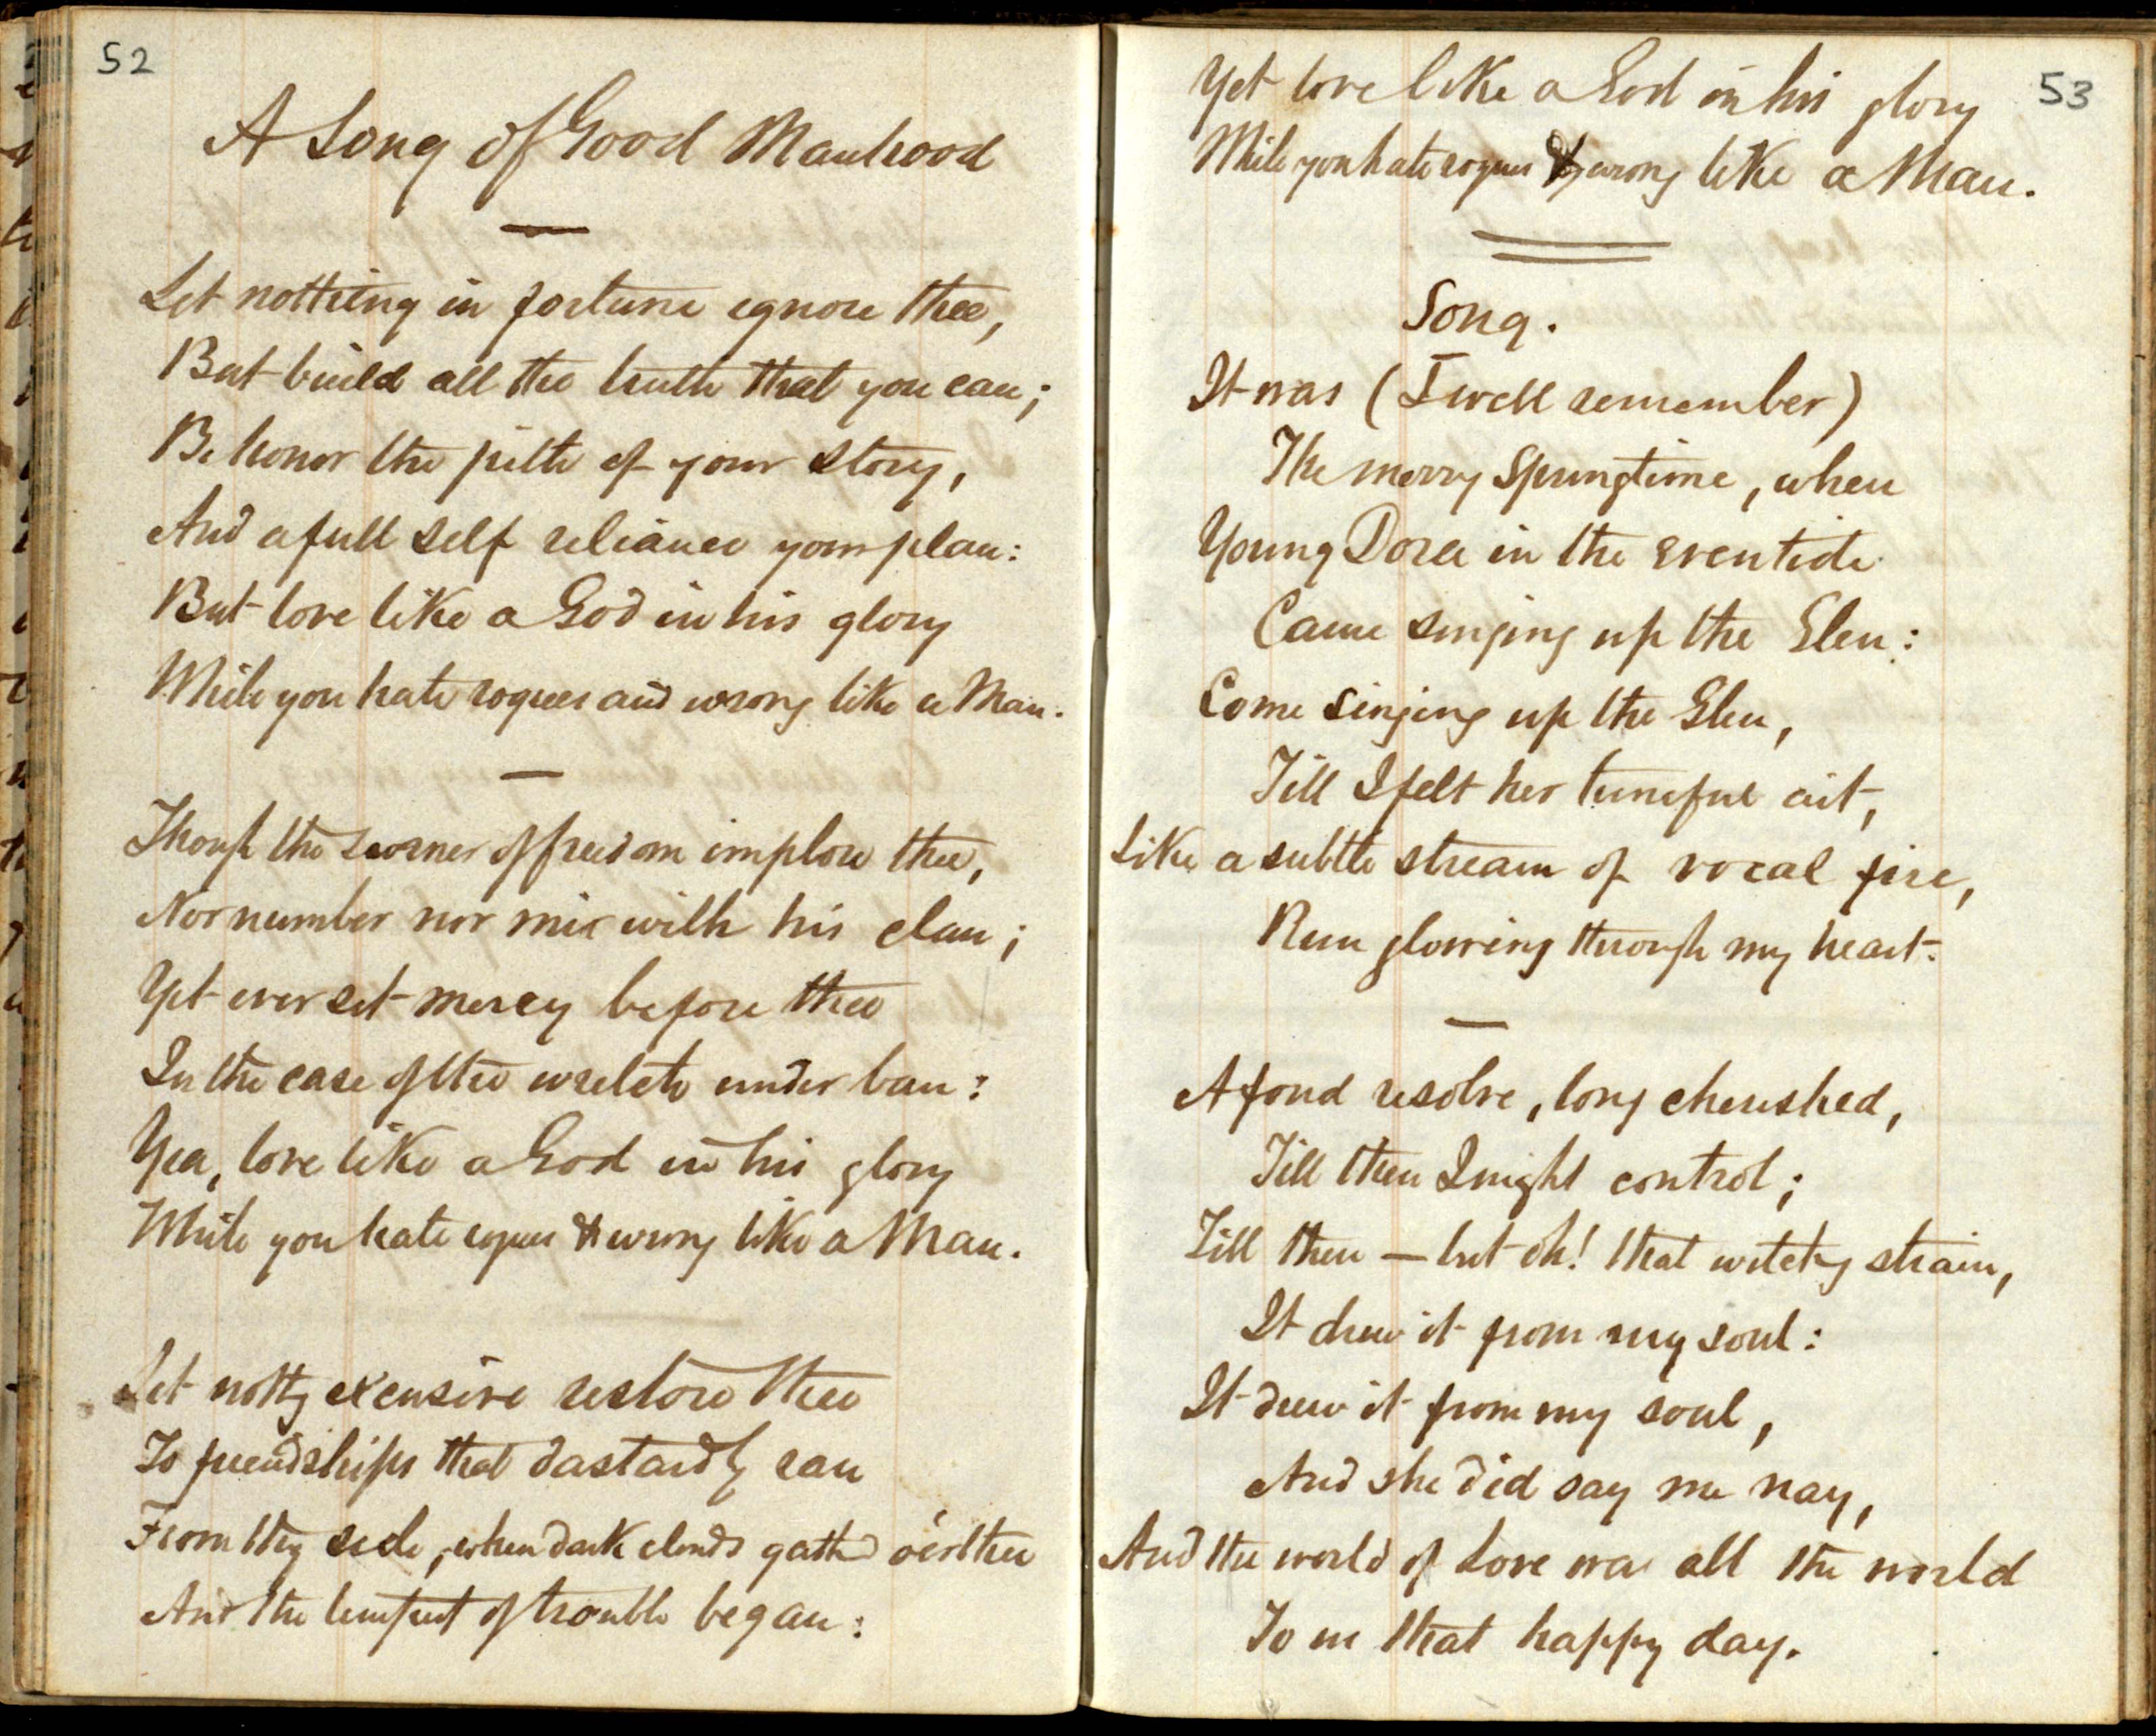 52
A Song of Good Manhood
Let nothing in fortune ignore thee,
But build all the truth that you can;
Be honor the pith of your story,
And a full self reliance your plan:
But love like a God in his glory
While you hate rogues and wrong like a Man.
Though the scorner of freedom implore thee,
Nor number nor mix with his clan;
Yet ever set mercy before thee
In the case of the wretch under ban:
Yea, love like a God in his glory
While you hate rogues & wrong like a Man.
Let nothg excusive restore thee
To friendships that dastardly ran
From thy side, when dark clouds gathd o'er thee
And the tempest of trouble began:
53
Yet love like a God in his glory
While you hate rogues & wrong like a Man.
Song.
It was (I well remember)
The merry Springtime, when
Young Dora in the eventide
Came singing up the Glen:
Come singing up the Glen,
Till I felt her tuneful art,
Like a subtle stream of vocal fire,
Run glowing through my heart.
A fond resolve, long cherished,
Till then I might control;
Till then — but oh! that witchg strain,
It drew it from my soul:
It drew it from my soul,
And she did say me nay,
And the world of Love was all the world
To me that happy day.